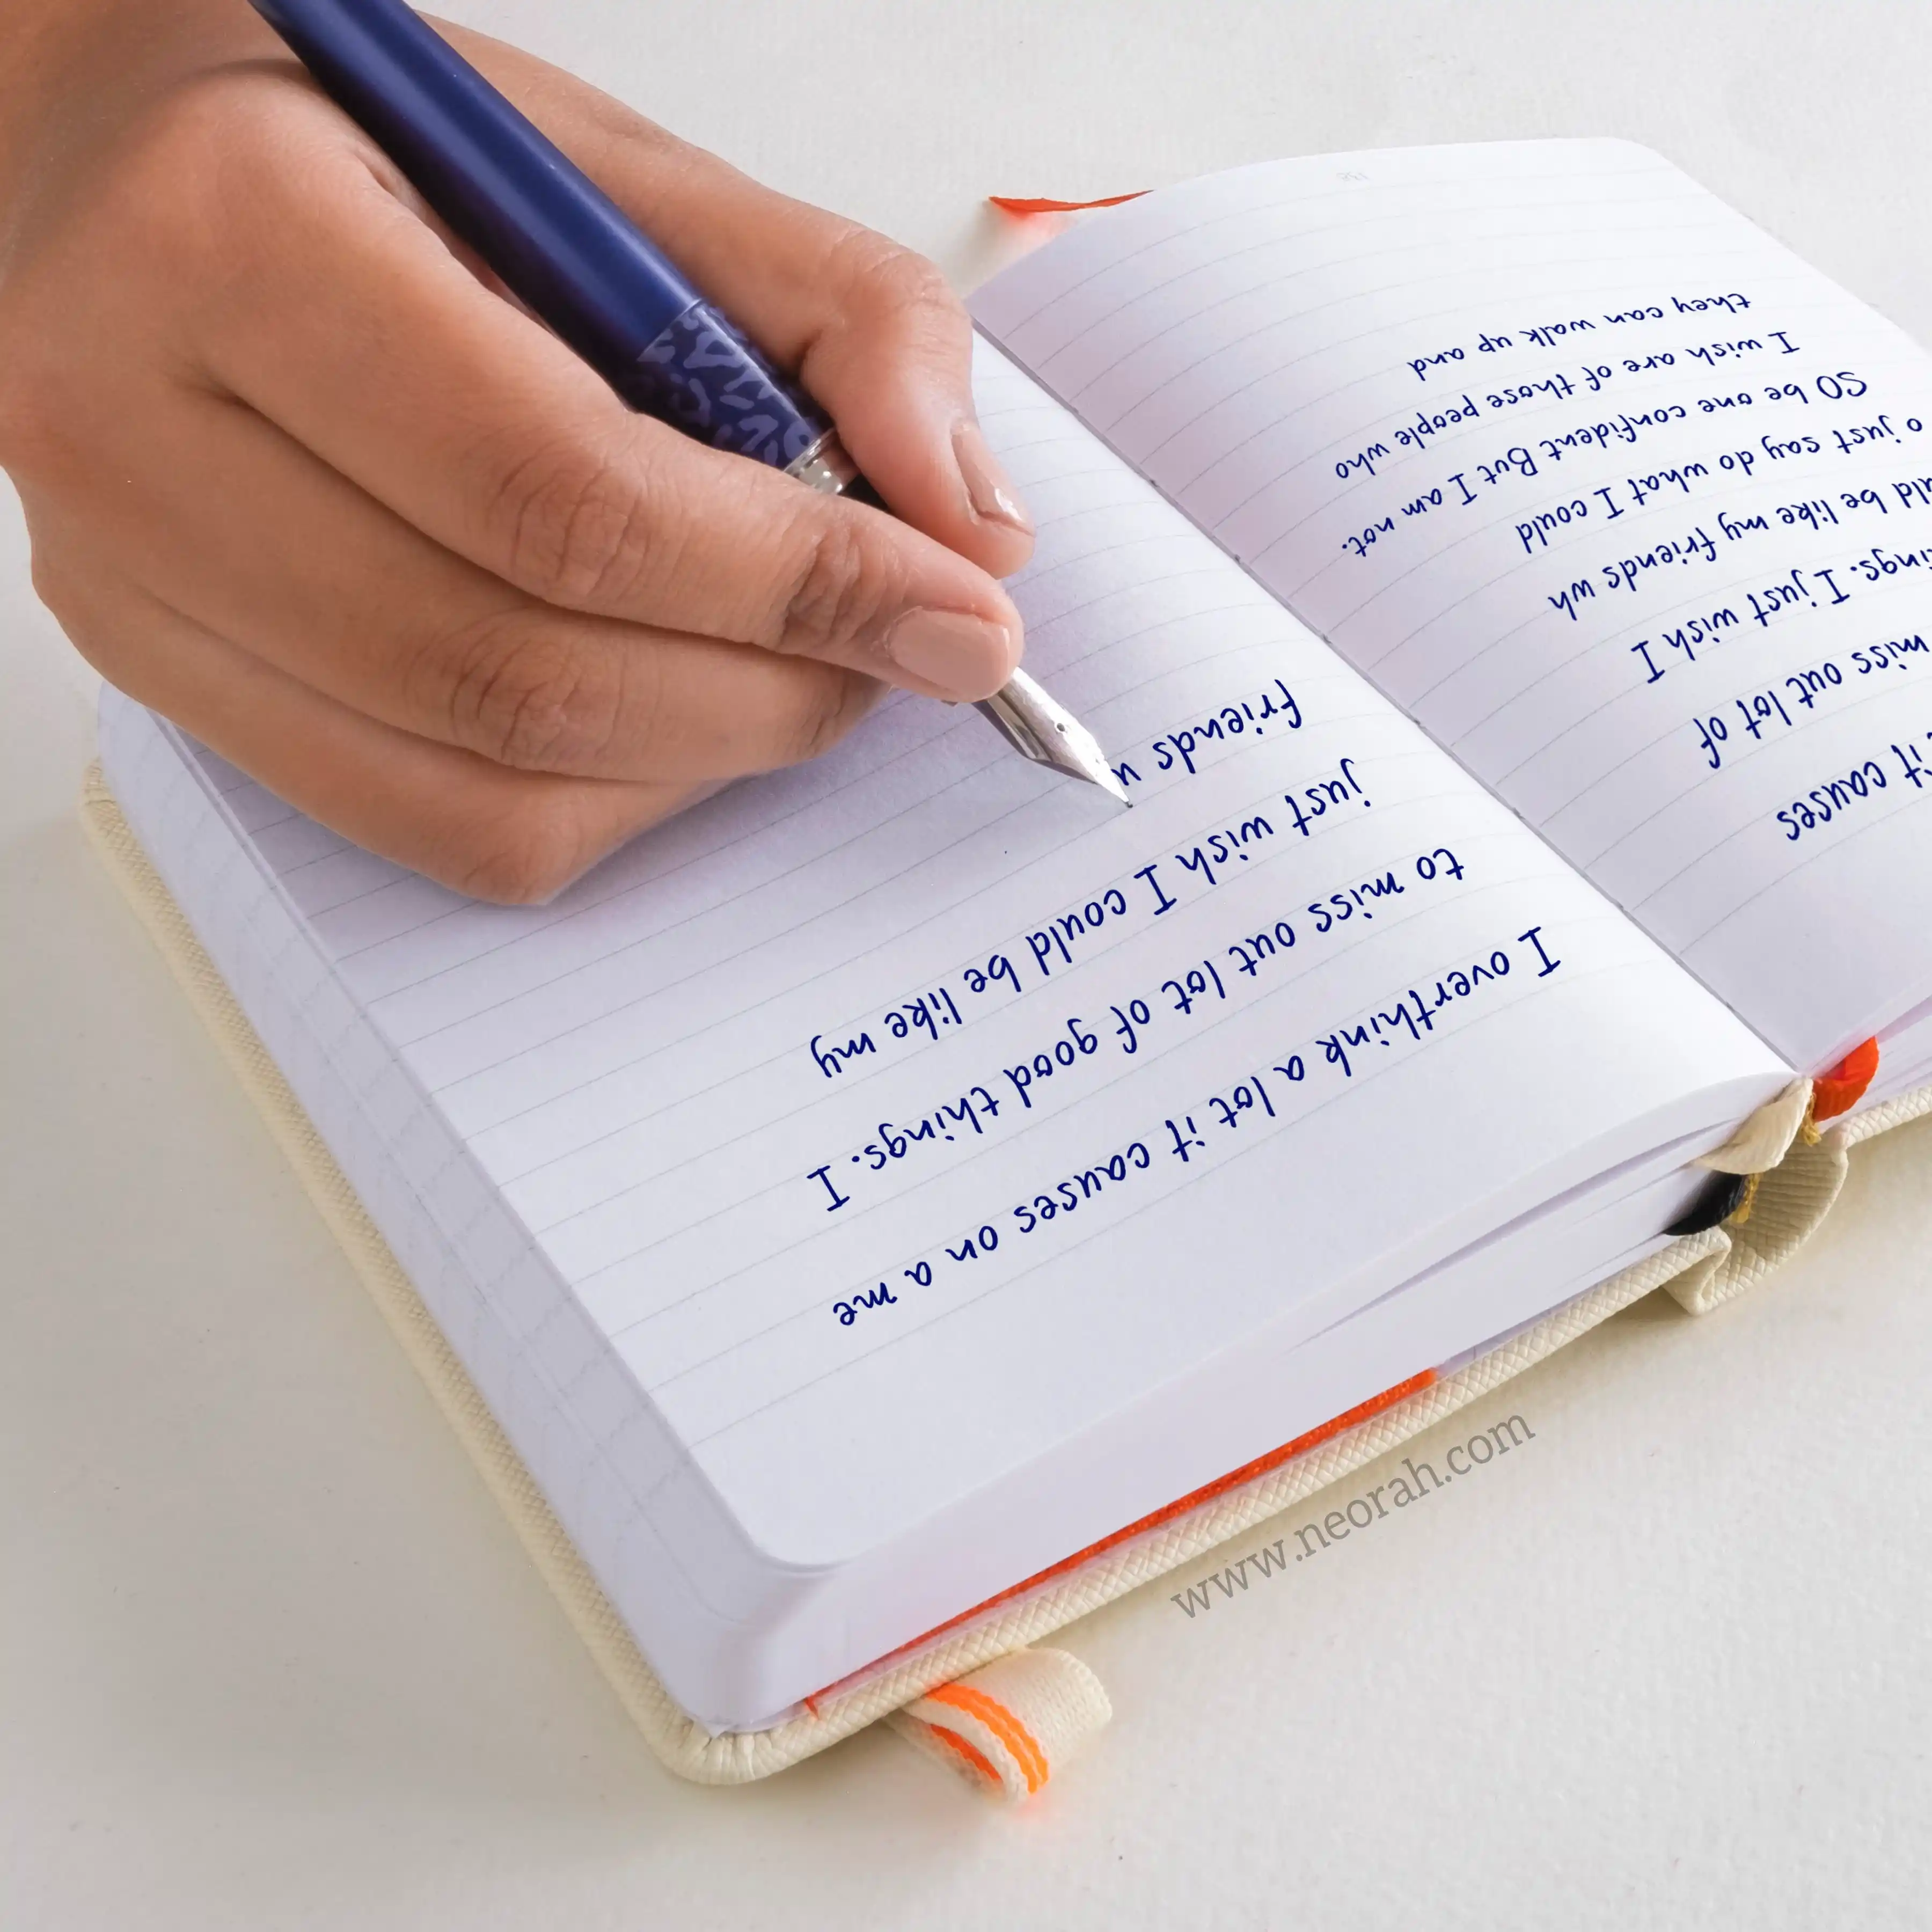 it causes
miss out lot of
ings. I just wish I
ld be like my friends wh
o just say do what I could
SO be one confident But I am not.
I wish are of those people who
they can walk up and
I overthink a lot it causes on a me
to miss out lot of good things. I
just wish I could be like my
friends w
www.neorah.com